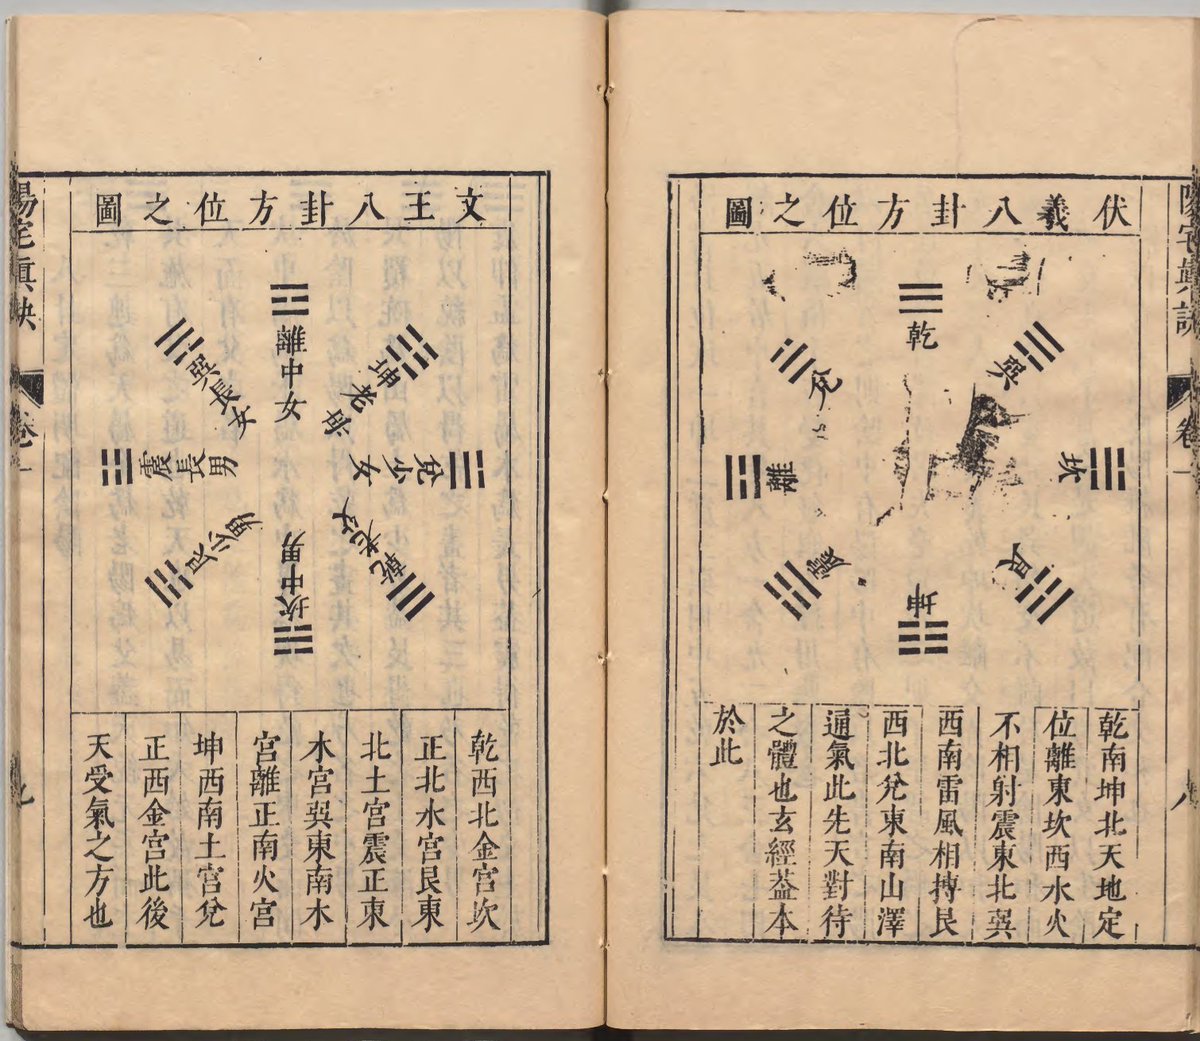 伏羲八卦方位之圖
乾
兌
巽
離
坎
震
艮
坤
乾南坤北天地定
位離東坎西水火
不相射震東北巽
西南雷風相搏艮
西北兌東南山澤
通氣此先天對待
之體也玄經葢本
於此
卷一
八
文王八卦方位之圖
離中女
坤老母
巽長女
兌少女
震長男
乾老父
艮少男
坎中男
乾西北金宮坎
正北水宮艮東
北土宮震正東
木宮巽東南木
宮離正南火宮
坤西南土宮兌
正西金宮此後
天受氣之方也
陽宅眞訣
卷一
九